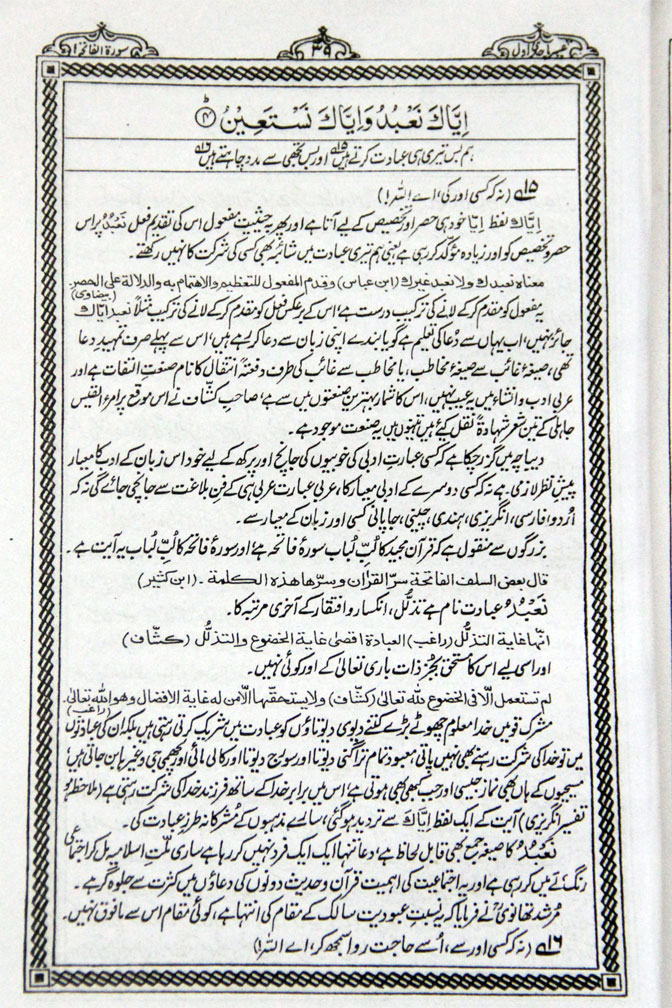 تفسیر ماجدی اول
۳۹
سورة الفاتحة ۱
اِیَّاكَ نَعْبُدُ وَاِیَّاكَ نَسْتَعِیْنُ ۴
ہم بس تیری ہی عبادت کرتے ہیں ۱۵ اور بس تجھی سے مدد چاہتے ہیں ۱۶
۱۵ (نہ کہ کسی اور کی، اے اللہ!)
اِیَّاكَ لفظ اِیَّا خود ہی حصر اور تخصیص کے لیے آتا ہے اور پھر بہ حیثیت مفعول اس کی تقدیم فعل نَعْبُدُ پر اس
حصر و تخصیص کو اور زیادہ مؤکد کر رہی ہے یعنی ہم تیری عبادت میں شائبہ بھی کسی کی شرکت کا نہیں رکھتے۔
معناه نعبدك ولا نعبد غيرك (ابن عباس) وقدم المفعول للتعظيم والاهتمام به والدلالة على الحصر۔ (بیضاوی)
مفعول کو مقدم کرکے لانے کی ترکیب درست ہے، اس کے برعکس فعل کو مقدم کرکے لانے کی ترکیب مثلاً نعبد ایاك
جائز نہیں، اب یہاں سے دُعا کی تعلیم ہے گویا بندے اپنی زبان سے دعا کر رہے ہیں، اس سے پہلے صرف تمہیدِ دعا
تھی، صیغۂ غائب سے صیغۂ مخاطب، یا مخاطب سے غائب کی طرف دفعۃً انتقال کا نام صنعتِ التفات ہے اور
عربی ادب و انشاء میں یہ عیب نہیں، اس کا شمار بہترین صنعتوں میں سے ہے، صاحبِ کشّاف نے اس موقع پر امرءُ القیس
جاہلی کے تین شعر شہادۃً نقل کیے ہیں تینوں میں یہ صنعت موجود ہے۔
دیباچہ میں گزر چکا ہے کہ کسی عبارتِ ادبی کی خوبیوں کی جانچ اور پرکھ کے لیے خود اس زبان کے ادب کا معیار
پیشِ نظر لازمی ہے نہ کہ کسی دوسرے کے ادبی معیار کا، عربی عبارت عربی ہی کے فنِ بلاغت سے جانچی جائے گی نہ کہ
اُردو، فارسی، انگریزی، ہندی، چینی، جاپانی کسی اور زبان کے معیار سے۔
بزرگوں سے منقول ہے کہ قرآن مجید کا لُبِّ لُباب سورۂ فاتحہ ہے، اور سورۂ فاتحہ کا لُبِّ لُباب یہ آیت ہے۔
قال بعض السلف الفاتحة سرّ القرآن وسرّها هذه الكلمة۔ (ابن کثیر)
نَعْبُدُ عبادت نام ہے تذلّل، انکسار و افتقار کے آخری مرتبہ کا۔
انّها غاية التذلّل (راغب) العبادة اقصى غاية الخضوع والتذلّل (کشّاف)
اور اسی لیے اس کا مستحق بجز ذات باری تعالیٰ کے اور کوئی نہیں۔
لم تستعمل الّا في الخضوع لله تعالىٰ (کشّاف) ولا يستحقها الّا من له غاية الافضال وهو الله تعالىٰ۔ (راغب)
مشرک قومیں خدا معلوم چھوٹے بڑے کتنے دیوی دیوتاؤں کو عبادت میں شریک کرتی رہتی ہیں بلکہ ان کی عبادتوں
میں تو خدا کی شرکت رہنے بھی نہیں پاتی، معبود تمام تر اگنی دیوتا اور سورج دیوتا اور کالی مائی اور لچھمی جی وغیرہا بن جاتی ہیں
مسیحیوں کے ہاں بھی نماز جیسی اور جب کبھی بھی ہوتی ہے، اس میں برابر خدا کے ساتھ فرزندِ خدا کی شرکت رہتی ہے (ملاحظہ ہو
تفسیر انگریزی) آیت کے ایک لفظ اِیَّاكَ سے تردید ہو گئی، سارے مذہبوں کے مشرکانہ طرزِ عبادت کی۔
نَعْبُدُ کا صیغۂ جمع بھی قابلِ لحاظ ہے، دعا تنہا ایک ایک فرد نہیں کر رہا ہے ساری ملّتِ اسلامیہ مل کر اجتماعی
رنگ میں کر رہی ہے اور یہ اجتماعیت کی اہمیت قرآن و حدیث دونوں کی دعاؤں میں کثرت سے جلوہ گر ہے۔
مُرشد تھانویؒ نے فرمایا کہ یہ نسبتِ عبودیت سالک کے مقام کی انتہا ہے، کوئی مقام اس سے مافوق نہیں۔
۱۶ (نہ کہ کسی اور سے، اُسے حاجت روا سمجھ کر، اے اللہ!)